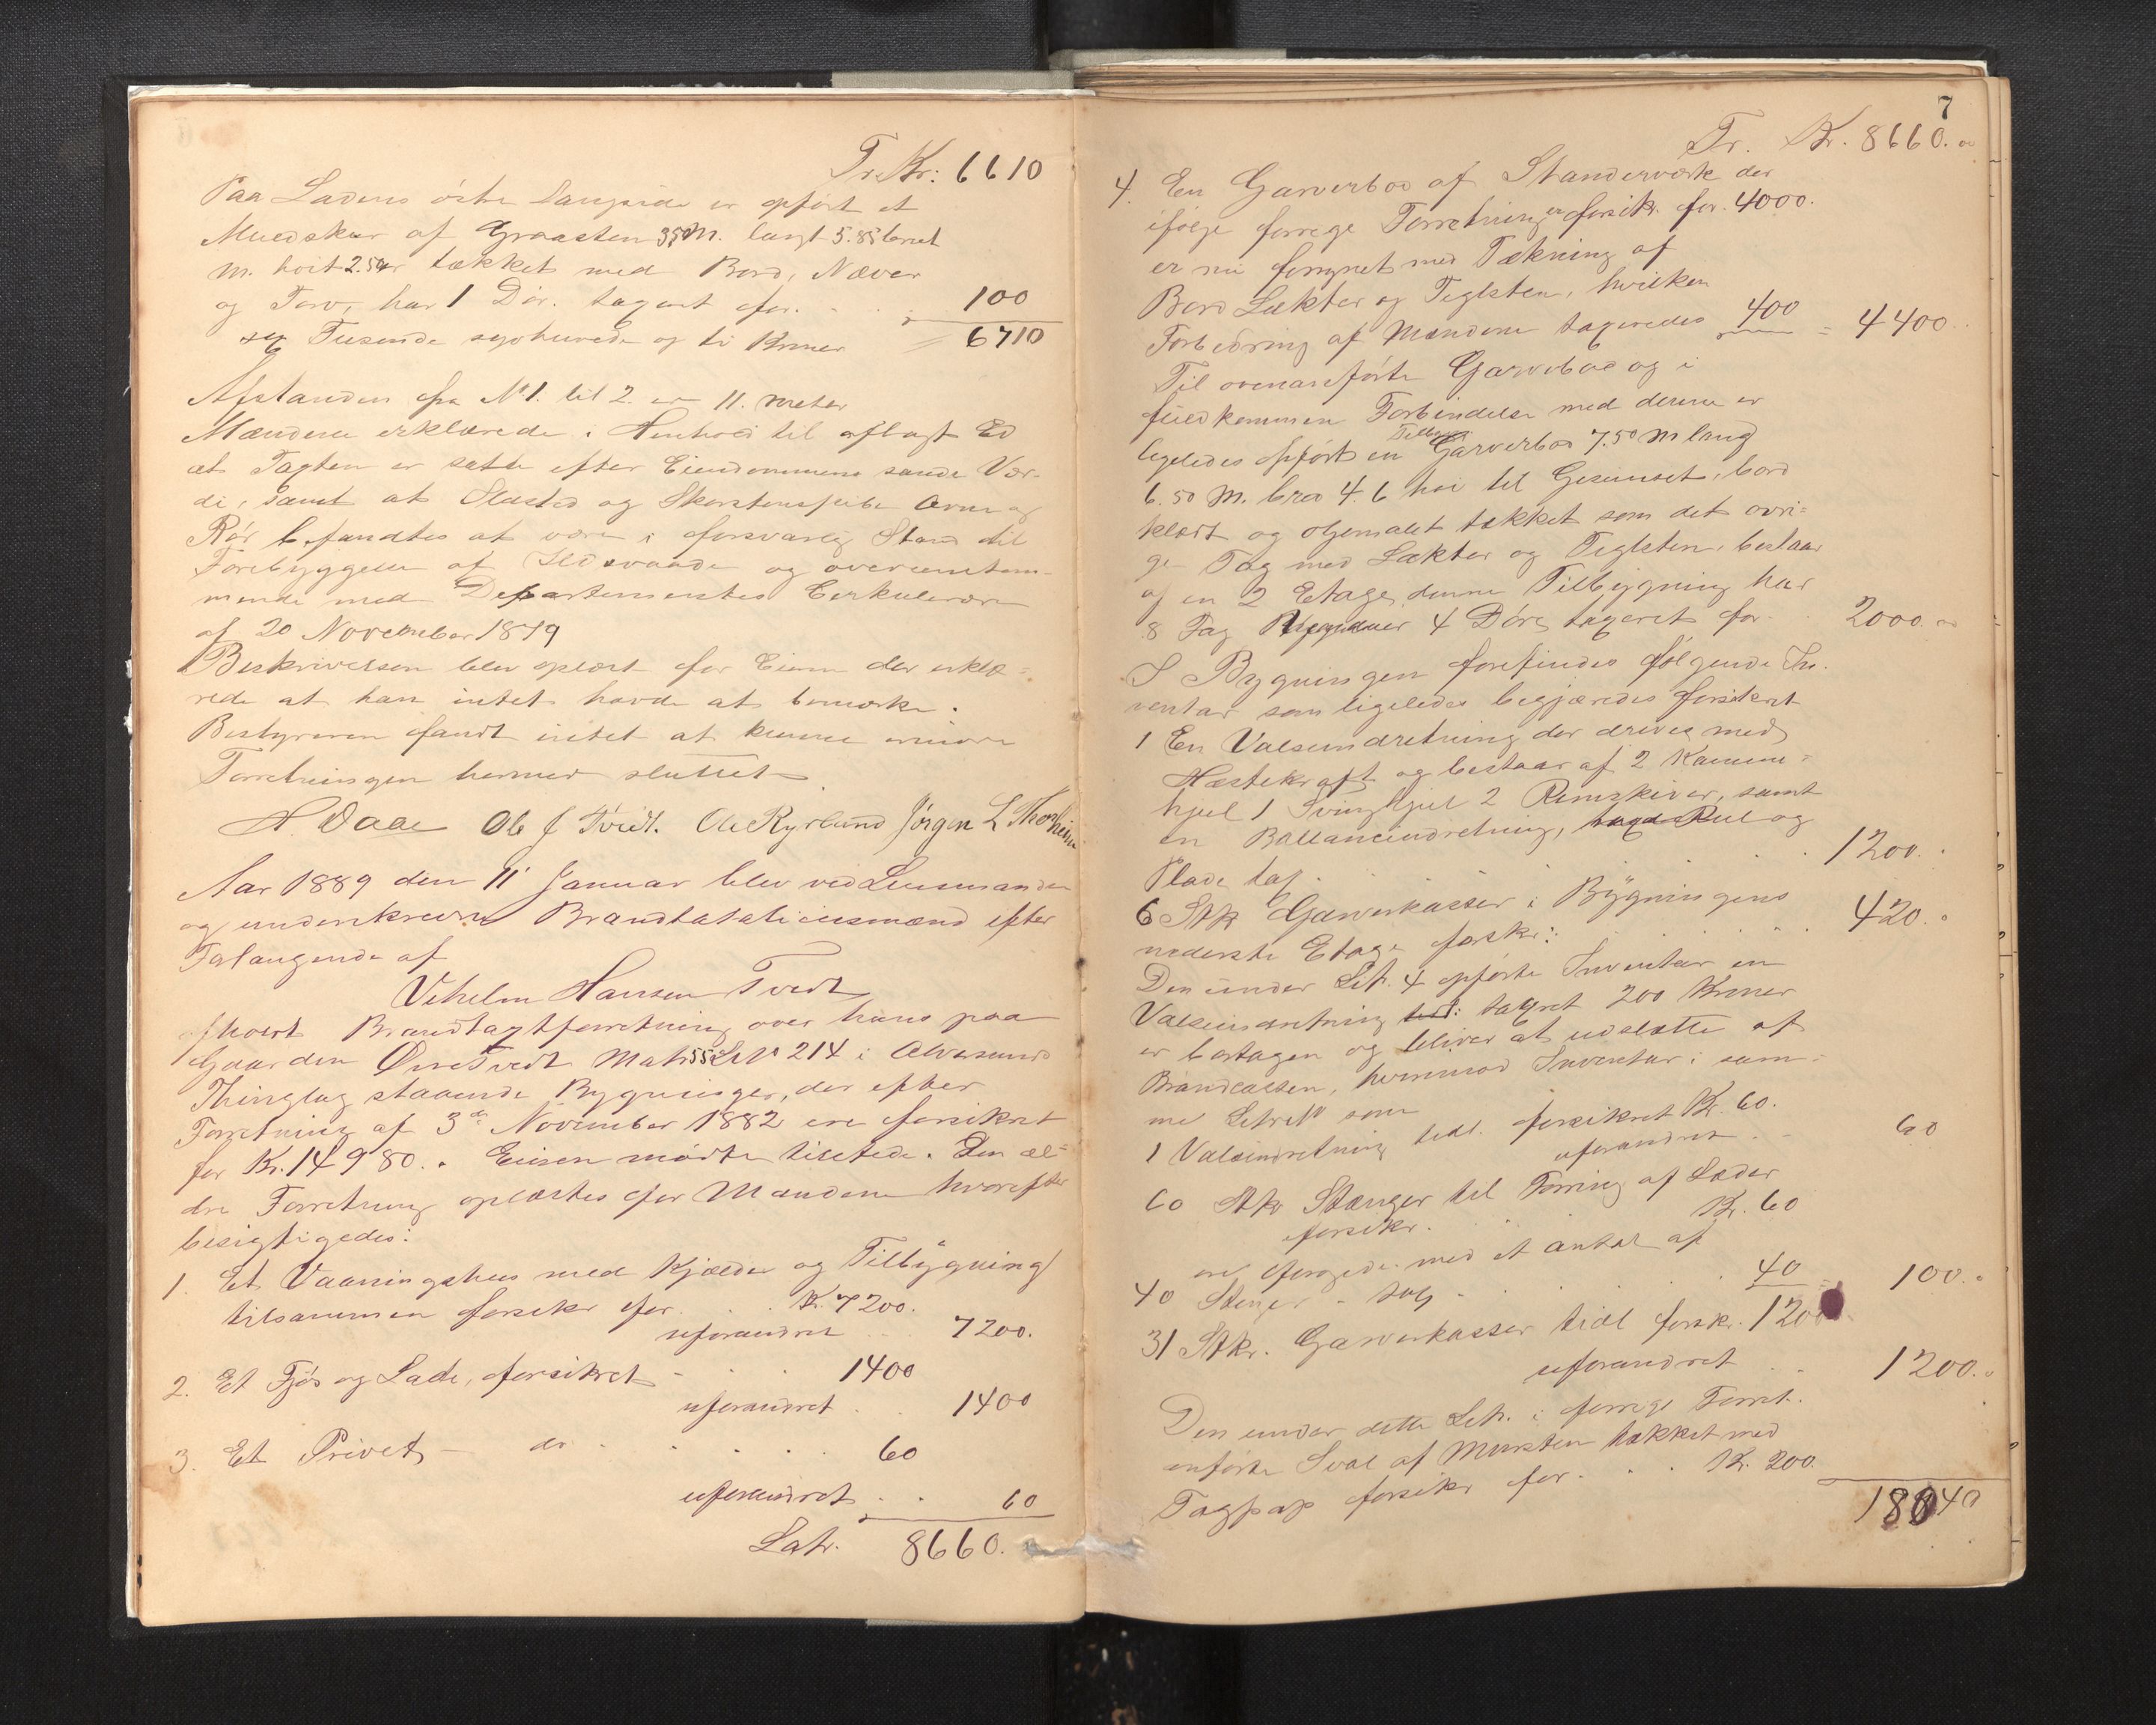 Tr. Kr: 6610
Paa Ladens østre Langside er opført et
Muedskur af Graasten 3.50 M. langt 5.85 bredt
M. høit 2.50 er tækket med Bord, Næver
og Torv, har 1 Dør. taxeret for . . . 100
sex Tusende syvhundrede og ti Kroner = 6710
Afstanden fra No 1. til 2. er 11. meter
Mændene erklærede i Henhold til aflagt Ed
at Taxten er satte efter Eiendommens sande Vær-
di, samt at Ildsted og Skorstenspibe Ovne og
Rør befandtes at være i forsvarlig Stand til
Forebyggelse af Ildsvaade og overensstem-
mende med Departementets Cirkulære
af 20 November 1879
Beskrivelsen blev oplæst for Eieren der erklæ-
rede at han intet havde at bemærke.
Bestyreren fandt intet at kunne erindre
Forretningen hermed sluttet
A. Daae Ole J Tvedt. Ole Kyrlund Jørgen L Thorsheim
Aar 1889 den 11 Januar blev ved Lensmanden
og underskrevne Brandtaxationsmænd efter
Forlangende af
Vihelm Hansen Tvedt
afholdt Brandtaxtforretning over hans paa
Gaarden Øvre Tvedt Matr 55 L No 214 i Alversund
Thinglag staaende Bygninger, der efter
Forretning af 3de November 1882 ere forsikret
for Kr. 14980. Eieren mødte tilstede. Den æl-
dre Forretning oplæstes for Mændene hvorefter
besigtigedes:
1. Et Vaaningshus med Kjælder og Tilbygning
tilsammen forsikr for . . . Kr. 7200.
uforandret . . 7200.
2. Et Fjøs og Lade, forsikret - . . 1400
uforandret . . 1400
3. Et Privet - do . . . . 60
uforandret . . 60
Latr. 8660.
7
Tr. Kr. 8660.
4. En Garverbod af Standerværk der
ifølge forrige Forretning er forsikr. for 4000.
er nu forsynet med Tækning af
Bord Lekter og Teglsten, hvilken
Forbedring af Mændene taxeredes 400 = 4400.
Til ovenanførte Garverbod og i
fuldkommen Forbindelse med denne er
ligeledes opført en Tilbygn Garverbod 7.50 M lang
6.50 M. bred 4.6 høi til Gesimset, bord
klædt og oljemalet tækket som det øvri-
ge Tag med Lækter og Teglsten, bestaar
af en 2 Etage, denne Tilbygning har
8 Fag Vinduer 4 Døre, taxeret for . 2000.
I Bygningen forefindes følgende In-
ventar som ligeledes begjæredes forsikret
1 En Valseindretning der drives med
Hæstekraft og bestaar af 2 Kamme-
hjul 1 Svinghjul 2 Remskiver, samt
en Ballanceindretning, Rul og
Plade tax. . . . . 1200.
6 Stk Garverkasser i Bygningens
nederste Etage forsikr: . . . . 420.
Den under Litr. 4 opførte Inventar en
Valseindretning tidl: taxeret 200 Kroner
er bortagen og bliver at udslette af
Brandcassen, hvorimod Inventar i sam-
me Litr No som
1 Valseindretning tidl. forsikret Kr. 60.
uforandret . . 60
60 Stk Stænger til Tørring af Læder
forsikr. . . . Kr. 60
ere forøgede med et antal af
40 Stenger - tax . . . . 40 100.
31 Stkr. Garverkasser tidl forsikr. 1200
uforandret . . 1200.
Den under dette Litr. i forrige Forret.
anførte Sval af Mursten tækket med
Tagpap forsikr for . . . Kr. 200.
18040